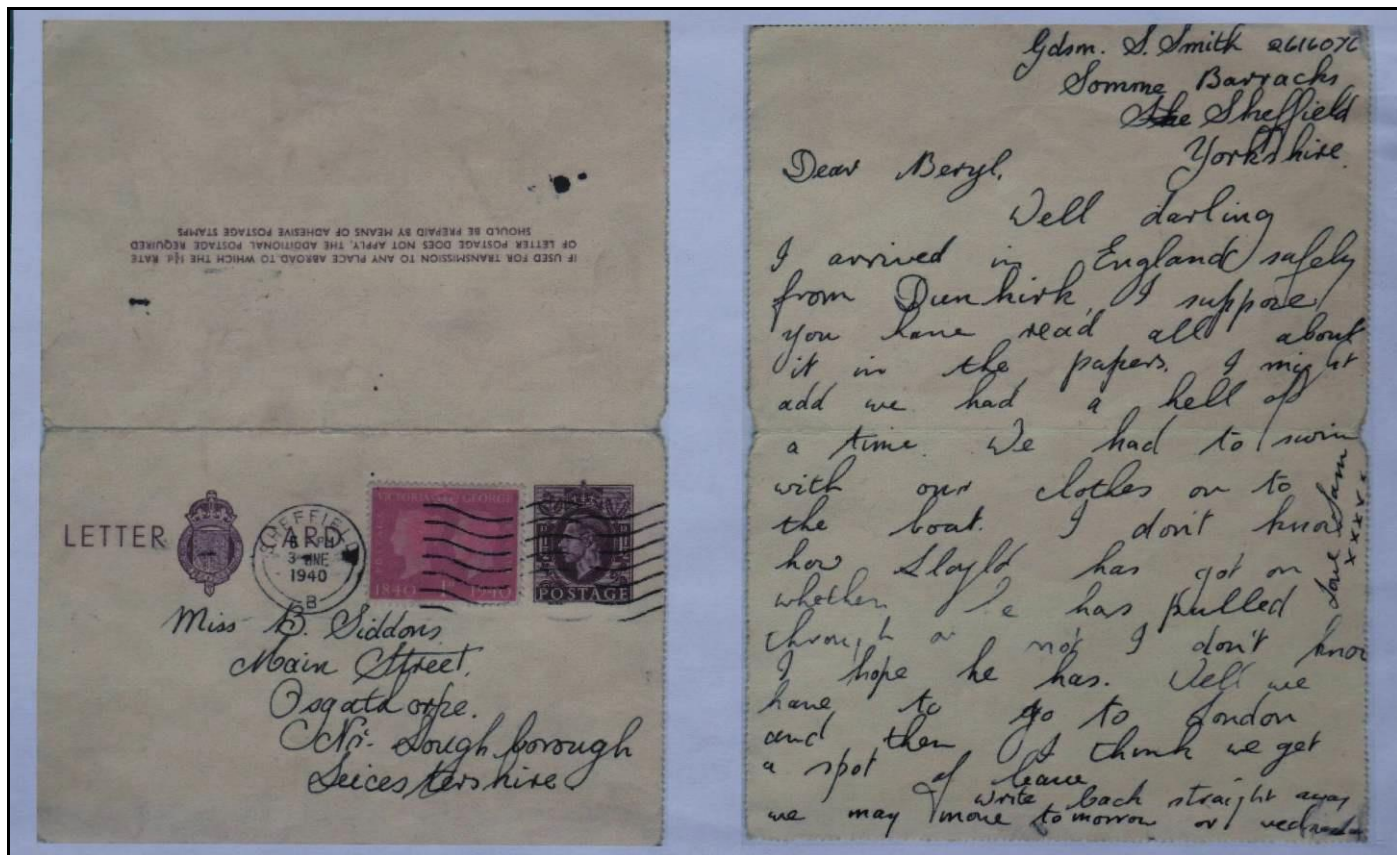 IF USED FOR TRANSMISSION TO ANY PLACE ABROAD TO WHICH THE 1½d RATE
OF LETTER POSTAGE DOES NOT APPLY, THE ADDITIONAL POSTAGE REQUIRED
SHOULD BE PREPAID BY MEANS OF ADHESIVE POSTAGE STAMPS
LETTER CARD
SHEFFIELD
3 JNE
1940
B
VICTORIA GEORGE
1840 1940
POSTAGE
Miss B. Siddons,
Main Street,
Osgathorpe.
Nr. Loughborough
Leicestershire
Gdsm. S. Smith 2616076
Somme Barracks
She Sheffield
Yorkshire.
Dear Beryl,
Well darling
I arrived in England safely
from Dunkirk, I suppose
you have read all about
it in the papers. I might
add we had a hell of
a time. We had to swim
with our clothes on to
the boat. I don't know
how Lloyld has got on
whether he has pulled
through or not I don't know
I hope he has. Well we
have to go to London
and then I think we get
a spot of leave
write back straight away
we may move tomorrow or wednesday
Love Sam
xxxxx